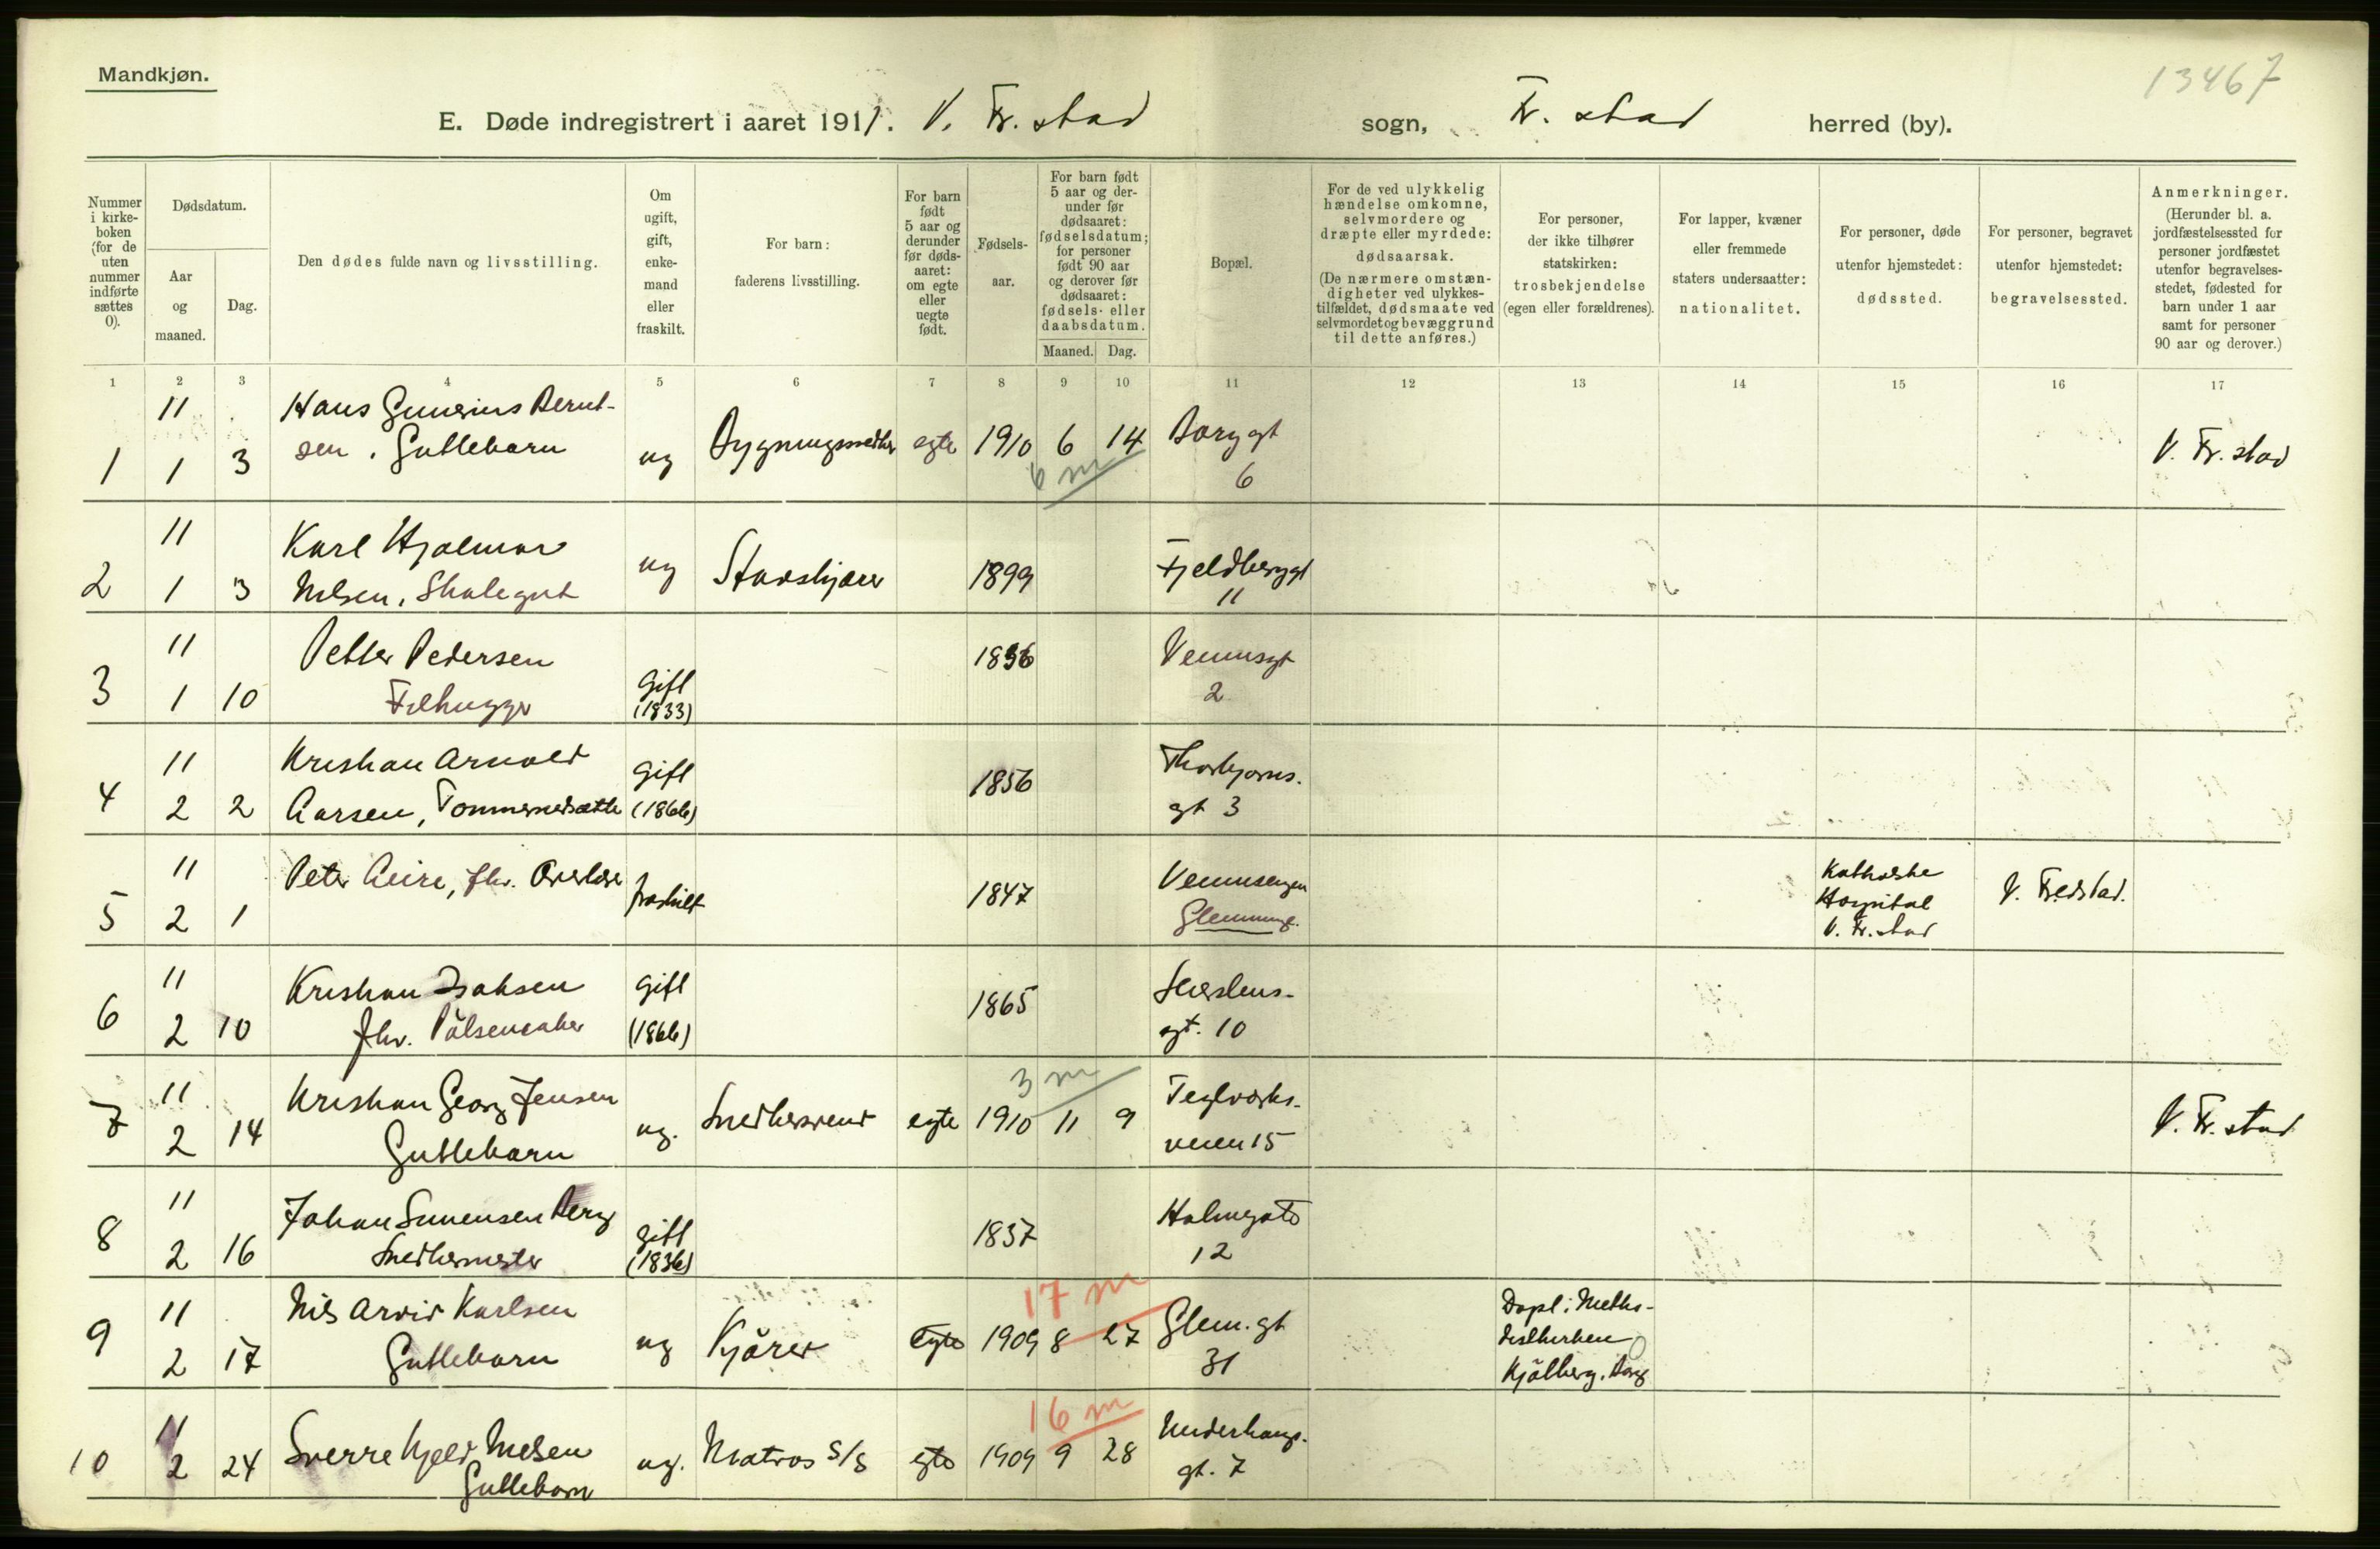 Mandkjøn.
13467
E. Døde indregistrert i aaret 1911. V. Fr.stad sogn, Fr.stad herred (by).
Nummer i kirkeboken (for de uten nummer indførte sættes 0).
Dødsdatum.
Aar og maaned.
Dag.
Den dødes fulde navn og livsstilling.
Om ugift, gift, enkemand eller fraskilt.
For barn: faderens livsstilling.
For barn født 5 aar og derunder før dødsaaret: om egte eller uegte født.
Fødselsaar.
For barn født 5 aar og derunder før dødsaaret: fødselsdatum; for personer født 90 aar og derover før dødsaaret: fødsels- eller daabsdatum.
Maaned. Dag.
Bopæl.
For de ved ulykkelig hændelse omkomne, selvmordere og dræpte eller myrdede: dødsaarsak.
(De nærmere omstændigheter ved ulykkestilfældet, dødsmaate ved selvmordet og bevæggrund til dette anføres.)
For personer, der ikke tilhører statskirken: trosbekjendelse (egen eller forældrenes).
For lapper, kvæner eller fremmede staters undersaatter: nationalitet.
For personer, døde utenfor hjemstedet: dødssted.
For personer, begravet utenfor hjemstedet: begravelsessted.
Anmerkninger.
(Herunder bl. a. jordfæstelsessted for personer jordfæstet utenfor begravelsesstedet, fødested for barn under 1 aar samt for personer 90 aar og derover.)
1 2 3 4 5 6 7 8 9 10 11 12 13 14 15 16 17
11 Hans Gunerius Bernt-
1 1 3 sen. Guttebarn ug egte 1910 6 14 Borggt 6 V. Fr.stad
6 m
11 Karl Hjalmar
2 1 3 Nilsen, Skolegut ug 1899 Fjeldberggt 11
11 Petter Pedersen
3 1 10 Filhugger Gift (1833) 1836 Venusgt 2
11 Kristian Arnold
4 2 2 Aarsen, Gift (1866) 1856 Thorbjørns. gt 3
11 Peter
5 2 1 fraskilt 1847 Glemminge. Katholske Hospital V. Fr.stad V. Fredstad.
11 Kristian Isaksen
6 2 10 fhv. Pölsemaker Gift (1866) 1865 gt. 10
3 m
11 Kristian Georg Jensen
7 2 14 Guttebarn ug. Snedkersvend egte 1910 11 9 Teglværks- veien 15 V. Fr.stad
11 Johan Simensen Berg
8 2 16 Snedkermester gift (1836) 1837 Holmegate 12
17 m
11 Nils Arvid Karlsen
9 2 17 Guttebarn ug Kjörer Egte 1909 8 27 Glem. gt 31 Døpt i Metho- distkirken Kjölberg, Borg
16 m
11
10 2 24 Sverre Kjeld Nilsen Guttebarn ug. Matros S/S egte 1909 9 28 gt. 7